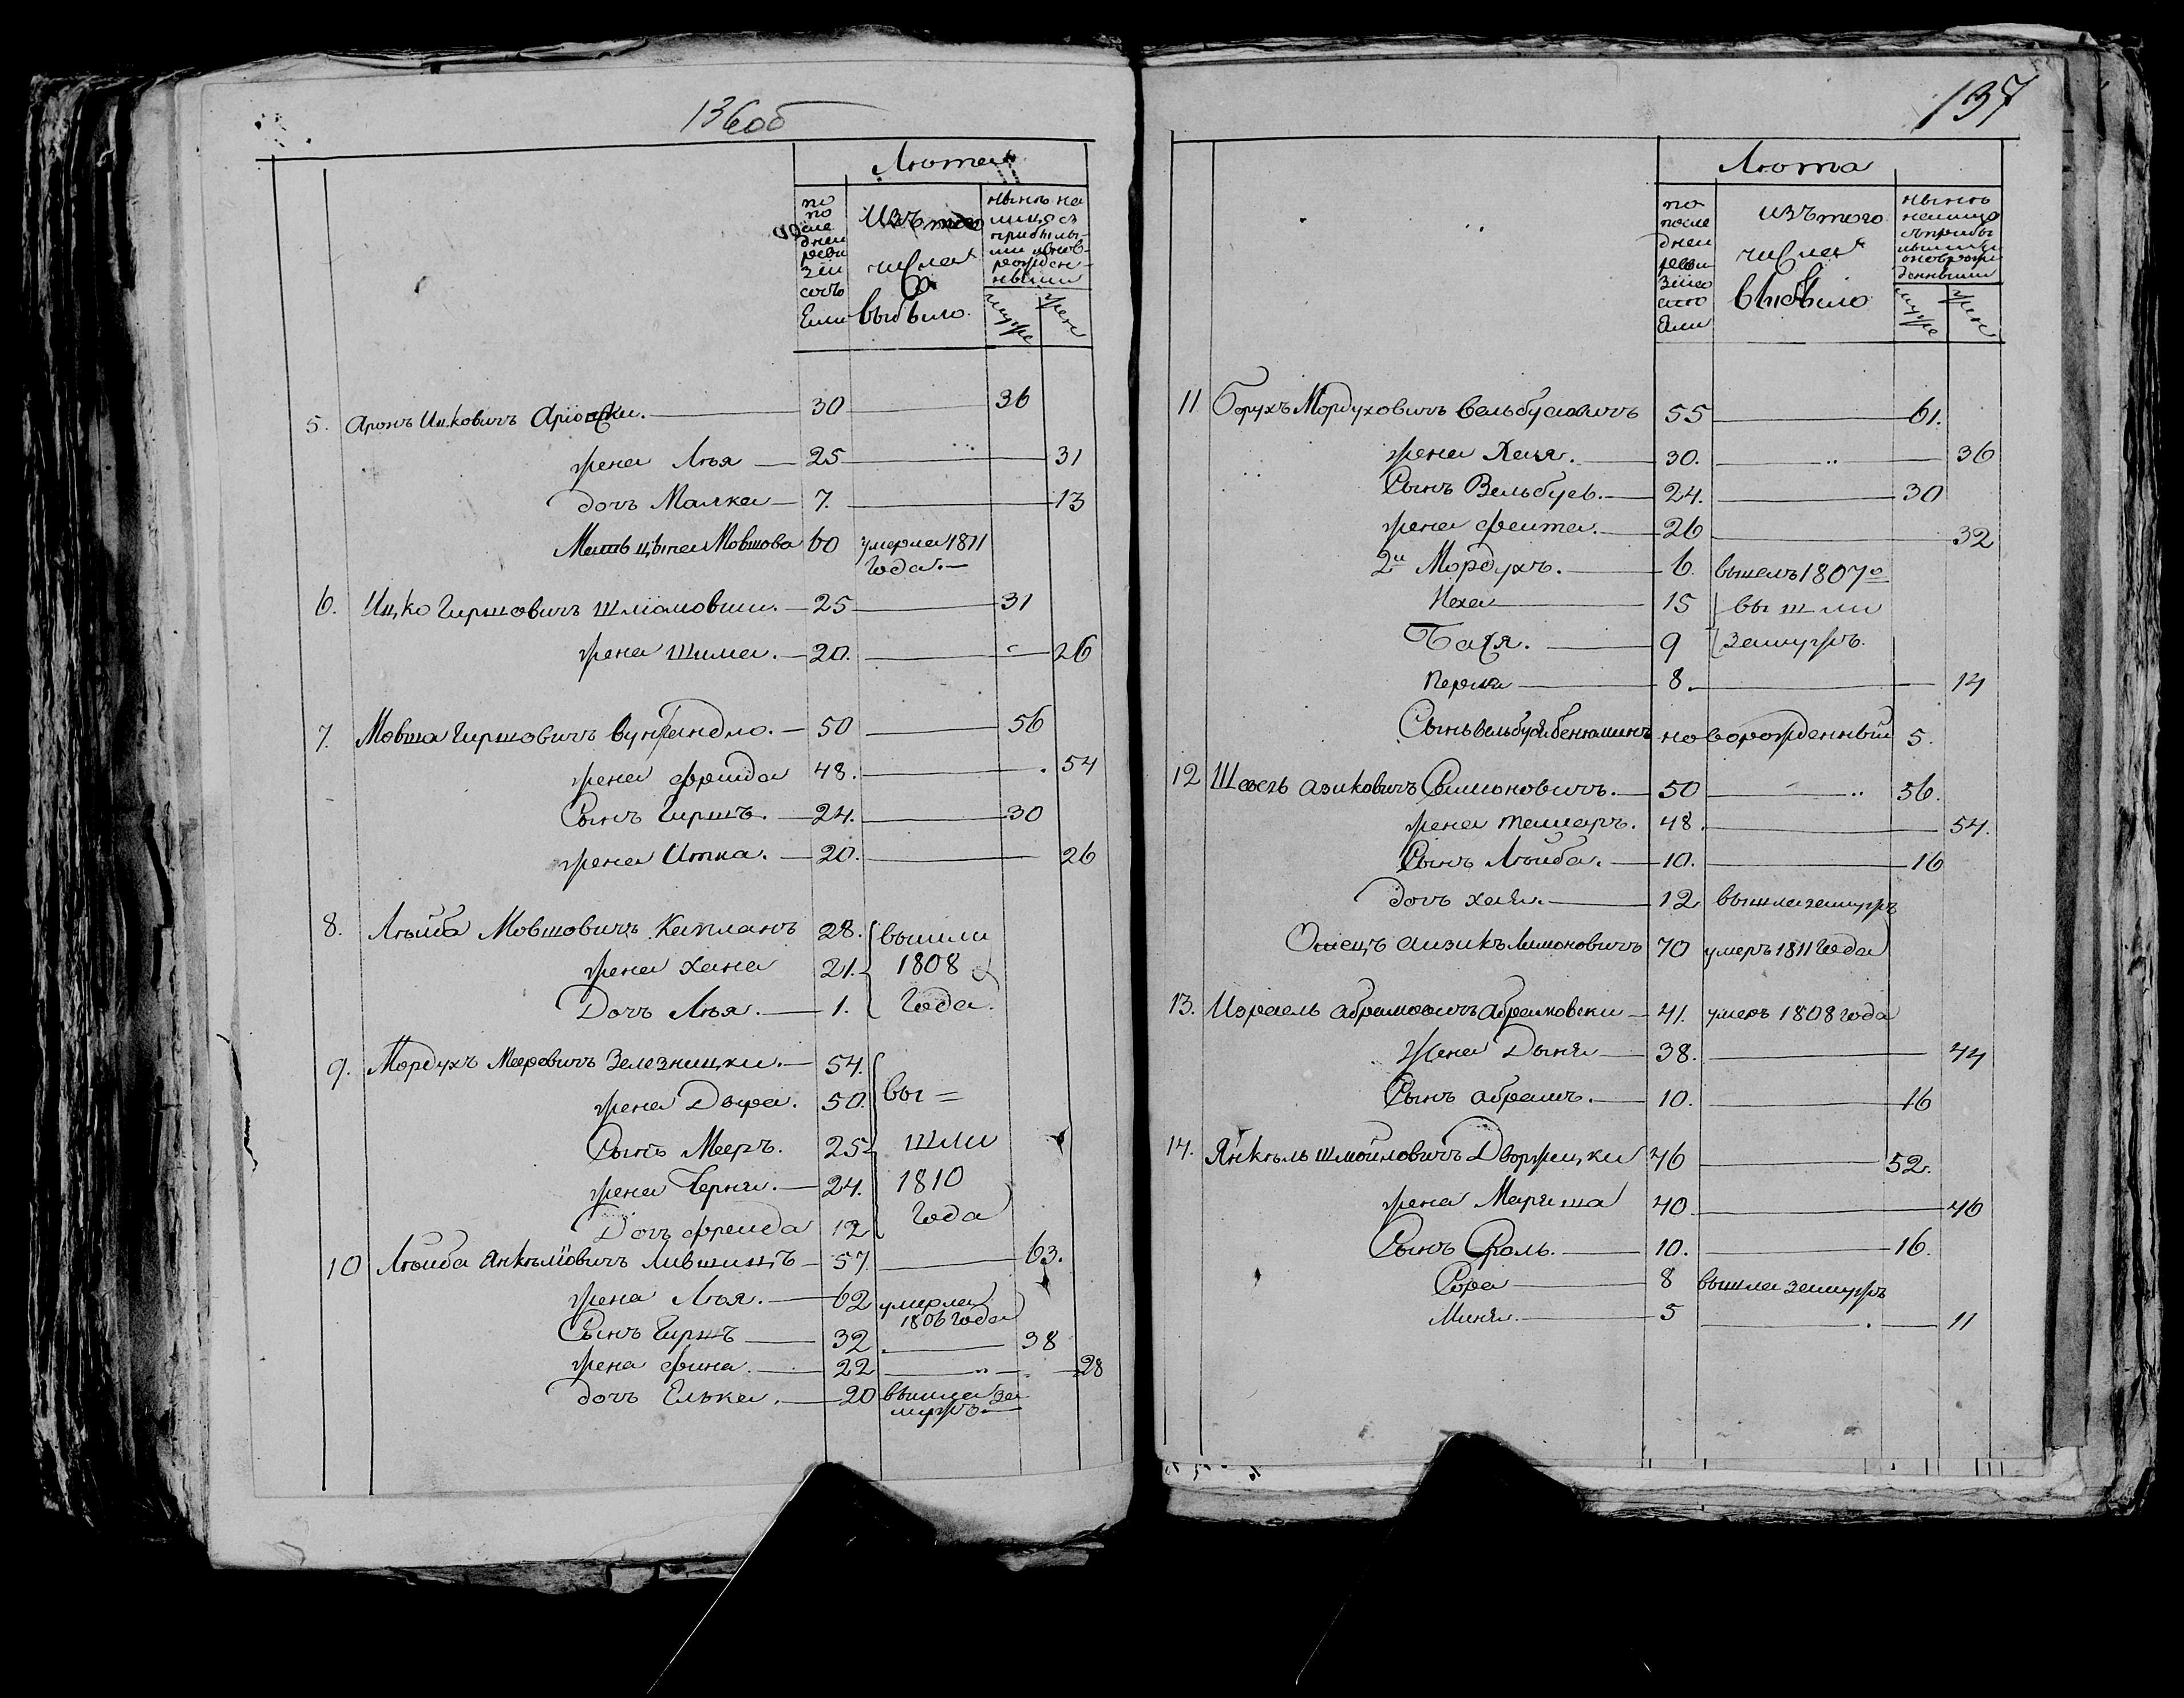 136об
Люта
по
по
сле
дней
реви
зіи
состо
Ели
изъ того
числа
выбыло.
нынѣ на
лицо съ
прибылы-
ми и нов-
рожден-
ными
муже
жен
5. Аронъ Ицковичъ Аріопски. 30 36
жена Лѣя 25 31
дочь Малка 7. 13
Мать Цыпа Мовшова 60 умерла 1811
года.
6. Ицко Гиршовичъ Шліомовши. 25 31
жена Шима. 20. 26
7. Мовша Гиршовичъ 50 56
жена Фрейда 48. 54
Сынъ Гиршъ. 24. 30
жена Итка. 20. 26
8. Лѣйба Мовшовичъ Капланъ 28. вышли
жена Хана 21. 1808
Дочь Лѣя. 1. года.
9. Мордухъ Меровичъ Зелезницки. 54.
жена Двера. 50. вы=
Сынъ Мееръ. 25 шли
жена Черня. 24. 1810
Дочь Фрейда 12 года
10 Лѣйба Янкѣліовичъ Лившицъ 57. 63.
жена Лѣя. 62 умерла
1806 года
Сынъ Гиршъ 32 38
жена Фина. 22 28
дочь Елька. 20 вышла за
мужъ.
137
Люта
по
после
дней
реви
зіи со
сто
Ели
изъ того
числа
выбыло
нынѣ
налицо
съ прибы
лыми и
новрож
денными
муже
жен
11 Борухъ Мордуховичъ Вельбусовичъ 55 61.
жена Хая. 30. 36
Сынъ Вельбусъ. 24. 30
жена Фейта. 26 32
2й Мордухъ. 6. вышелъ 1807го
Неха 15 вышли
Бася. 9 замужъ.
Перла 8. 14
Сынъ Вельбуса Бенюминъ новорожденный 5.
12 Шоель Азиковичъ Симоновичъ. 50 56.
жена Темаръ. 48. 54.
Сынъ Лѣйба. 10. 16
дочь Хая. 12 вышла замужъ
Отецъ Аизикъ Лимоновичъ 70 умеръ 1811 года
13. Израель Абрамовичъ Абрамовски 41. умеръ 1808 года
Жена Дыня 38. 44
Сынъ Абрамъ. 10. 16
14. Янкѣль Шмойловичъ Дворжецки 46 52.
жена Маряша 40 46
Сынъ Сроль. 10. 16.
Сора 8 вышла замужъ
Миня. 5 11